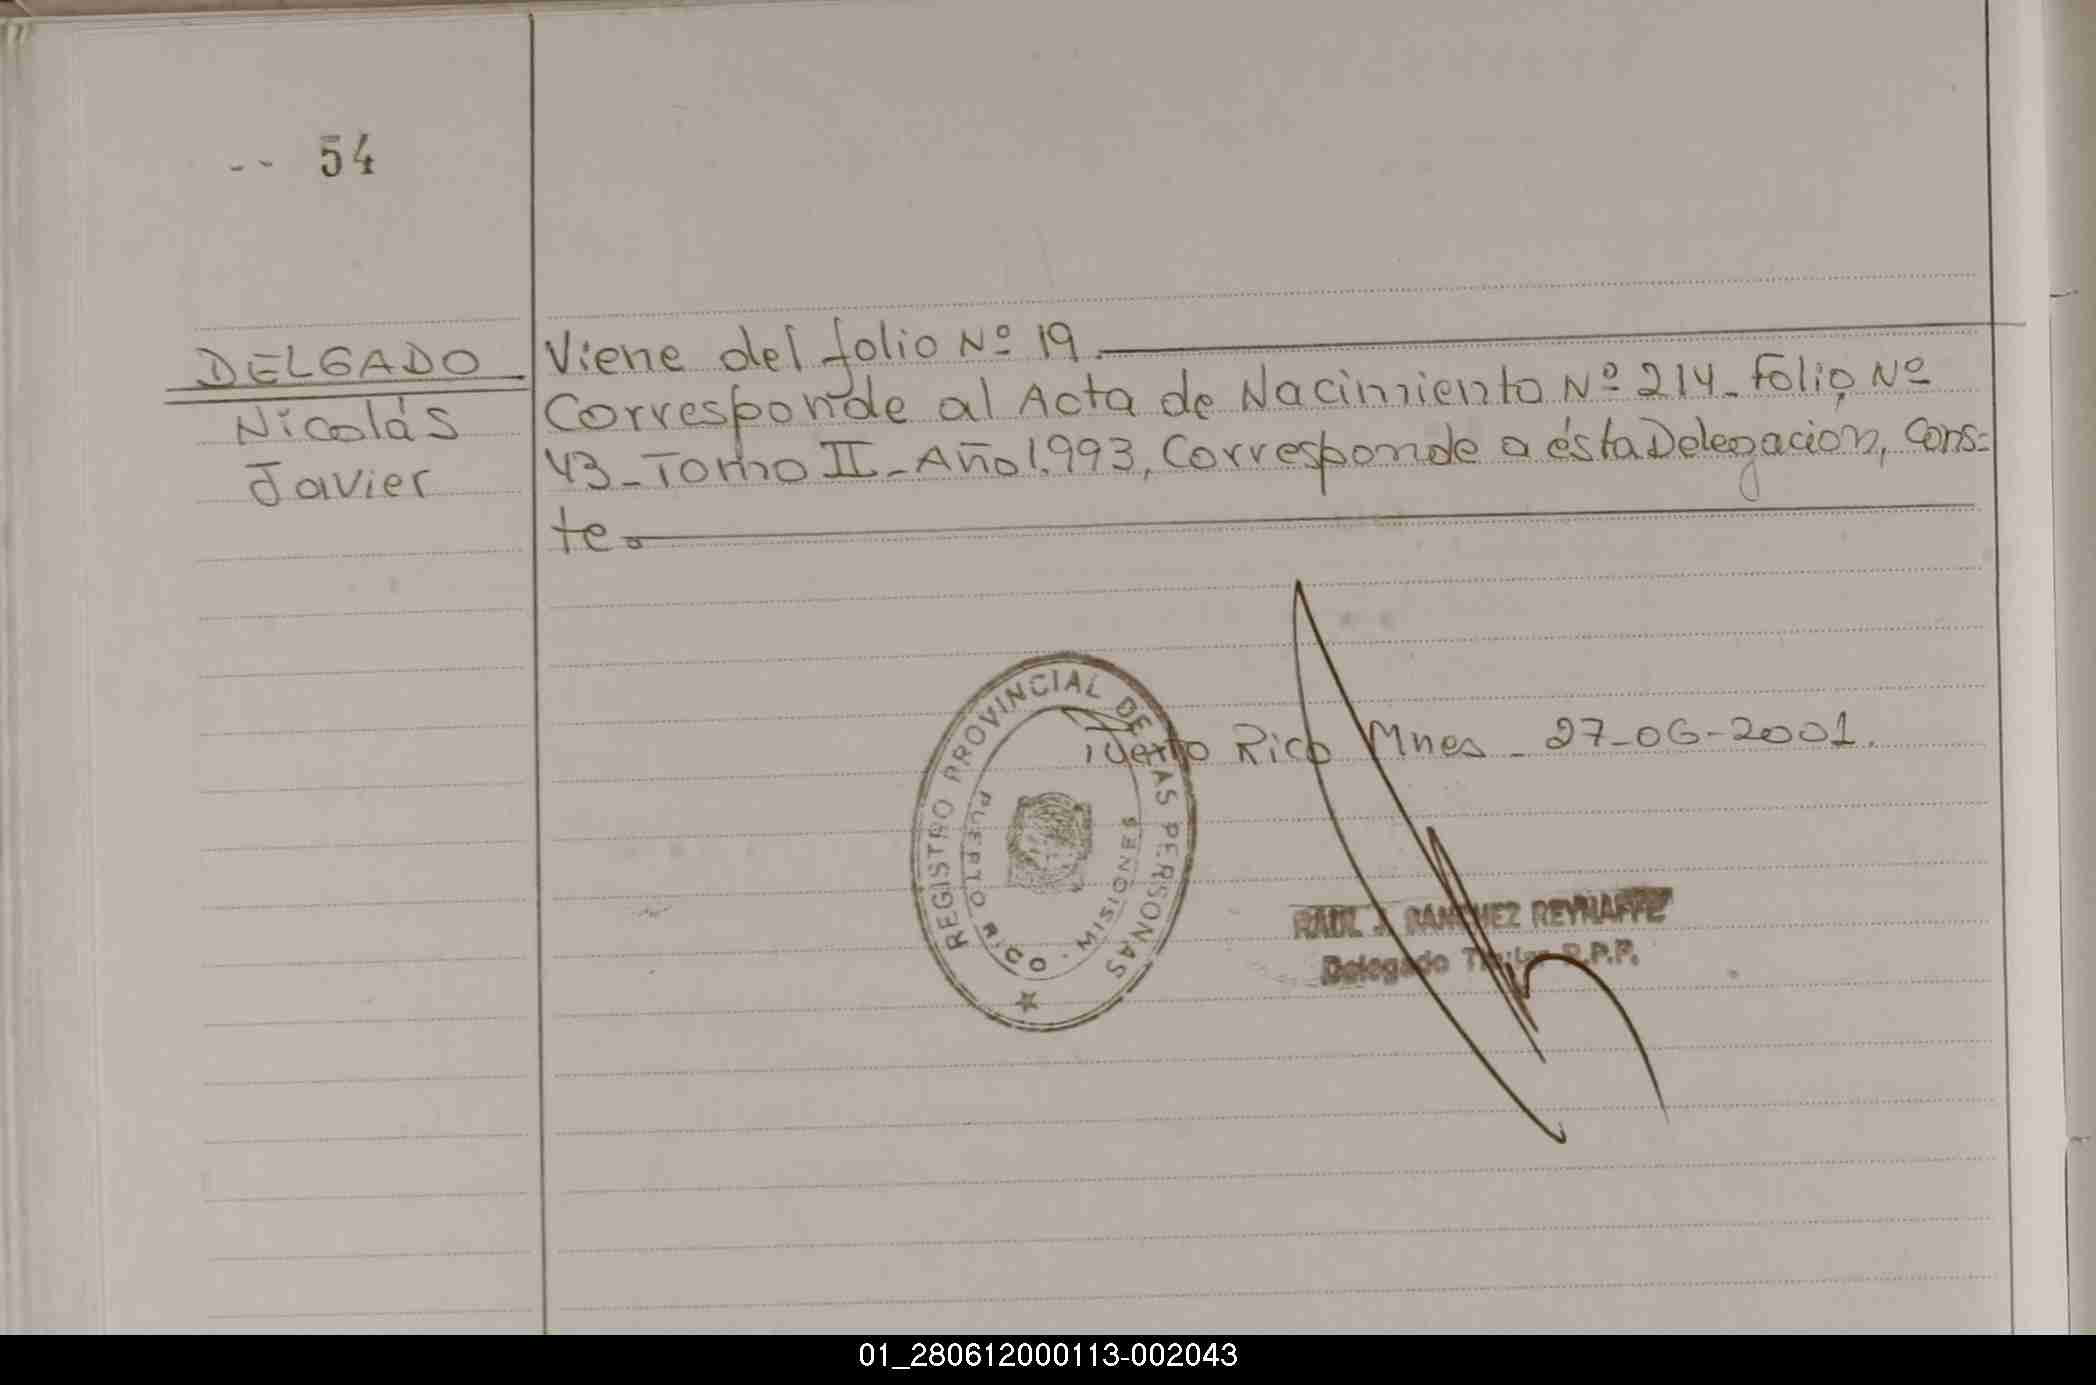 -- 54
DELGADO
Nicolás
Javier
Viene del folio Nº 19.
Corresponde al Acta de Nacimiento Nº 214_ Folio Nº
43_ Tomo II_ Año 1.993, Corresponde a ésta Delegación, Cons=
te.
Puerto Rico Mnes_ 27-06-2001.
REGISTRO PROVINCIAL DE LAS PERSONAS
PUERTO RICO. MISIONES
RAUL J. SANCHEZ REYNAFFE
Delegado Titular R.P.P.
01_280612000113-002043